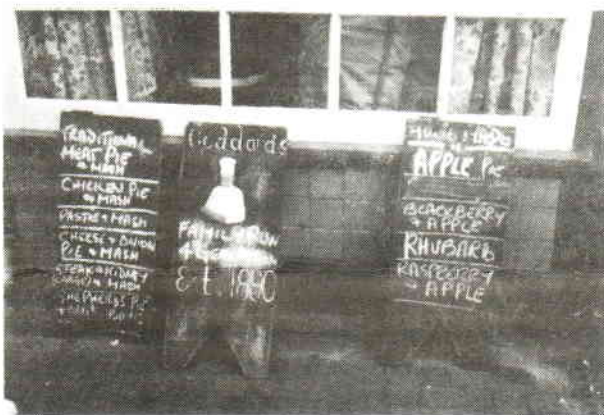 TRADITIONAL
MEAT PIE
& MASH
CHICKEN PIE
& MASH
PASTIE & MASH
CHEESE & ONION
PIE & MASH
STEAK & KIDNEY
& MASH
SHEPHERDS PIE
Goddards
FAMILY RUN
EST. 1890
APPLE PIE
BLACKBERRY
& APPLE
RHUBARB
RASPBERRY
& APPLE